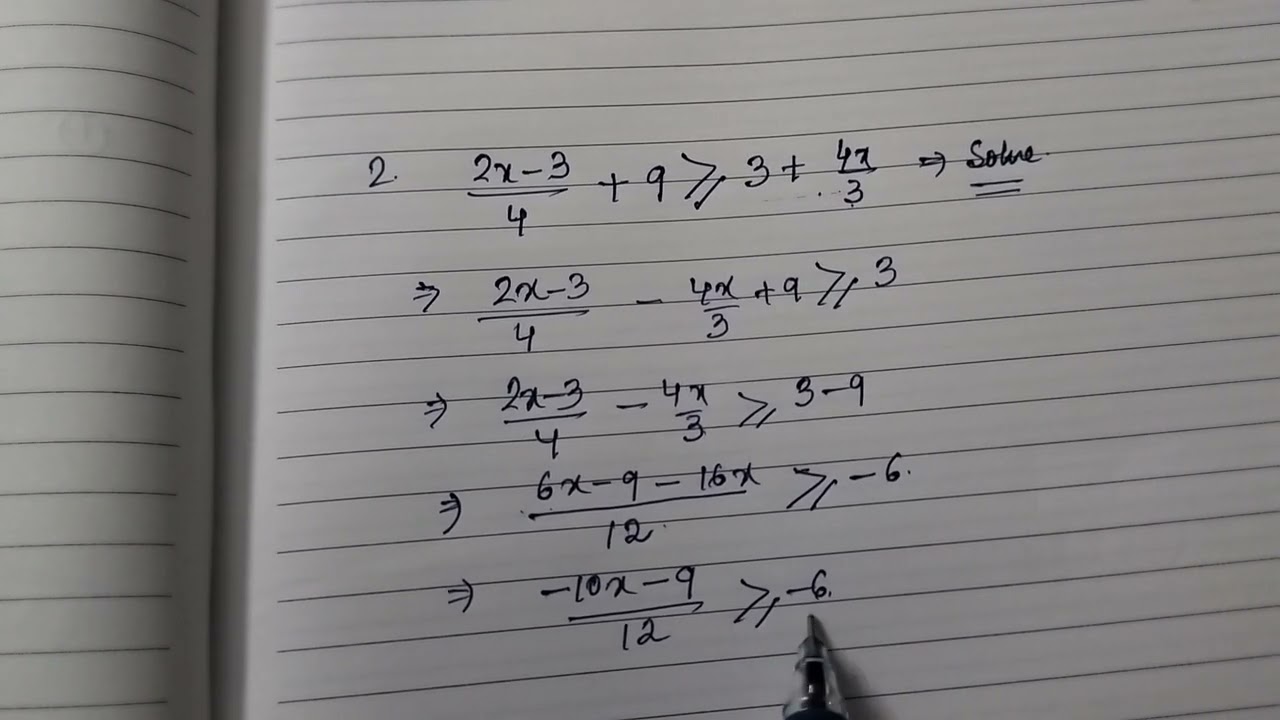 2. (2x-3)/4 + 9 ⩾ 3 + 4x/3 ⇒ Solve
⇒ (2x-3)/4 - 4x/3 + 9 ⩾ 3
⇒ (2x-3)/4 - 4x/3 ⩾ 3-9
⇒ (6x-9-16x)/12 ⩾ -6.
⇒ (-10x-9)/12 ⩾ -6.